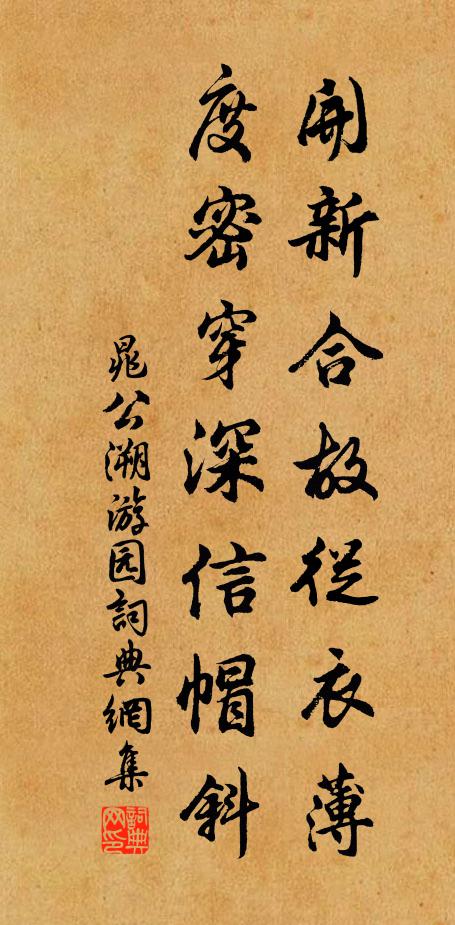 開新合故從衣薄
度密穿深信帽斜
晁公溯游园詞典網集
詞典网印